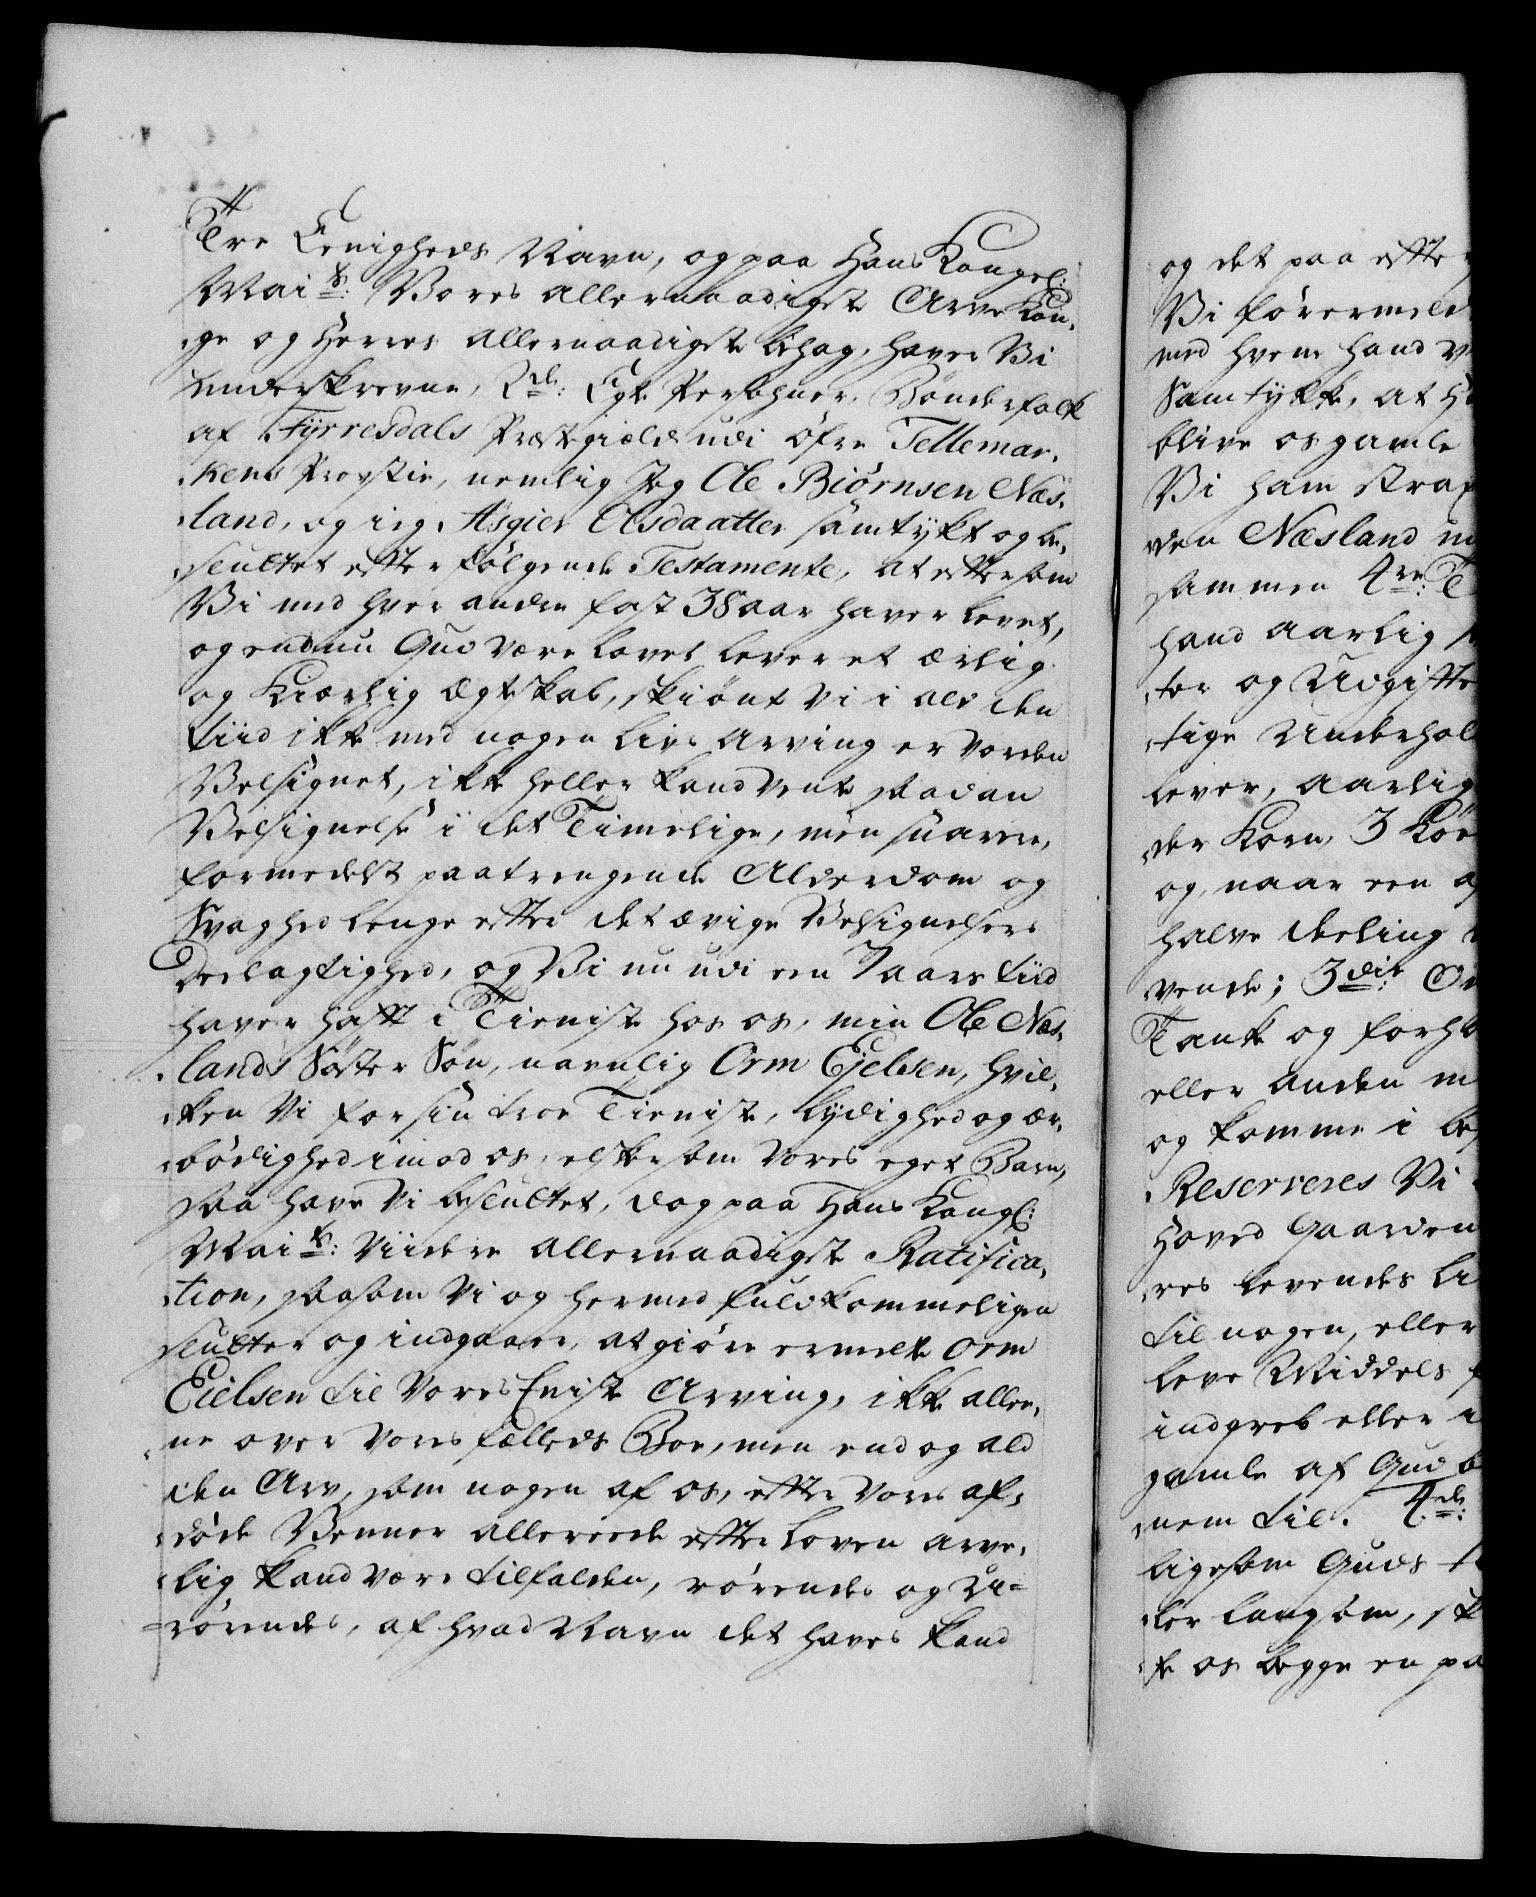 Tre Eenigheds Navn, og paa Hans Kongel:
Mai:ts: Vores allernaadigste Arve Kon,
,ge og Herres allernaadigste behag, haver Vi
underskrevne, 2de: Egte Persohner, Bønderfolk
af Fÿrresdals Præstegield udi öfre Tellemar,
,kens Provstie, nemlig Jeg Ole Biörnsen Næs,
,land, og ieg Asgier Olsdaatter samtykt og be,
,sluttet efterfølgende Testamente, at eftersom
Vi med hver anden fast 38 aar haver levet,
og endnu Gud være lovet lever et ærlig
og Kiærlig Ægteskab, skiönt Vi i ald den
tiid ikke med nogen livs Arving er vorden
Velsignet, ikke heller kand vente saadan
Velsignelse i det Timelige, men snarere,
formedelst paatrengende Alderdom og
Svaghed lenge efter det ævige Velsignelses
Deelagtighed, og Vi nu udi een 7 aars tiid
haver hafft i Tieniste hos os, min Ole Næs,
,lands Söster Sön, navnlig Orm Ejelsen, hvil,
,ken Vi for sin troe Tieniste, lÿdighed og ær,
,bödighed imod os, elsker som vores eget Barn,
saa have Vi besluttet, dog paa Hans Kongl:
Mai:ts: Viidere allernaadigste Ratifica,
,tion, saasom Vi og hermed fuldkommeligen
slutter og indgaaer, at giöre ermelte Orm
Eielsen til Vores Eniste Arving, ikke allee,
,ne over Vores fælleds Boe, men end og ald
den Arv, som nogen af os, efter Vores af,
,döde Venner allereede efter Loven arve,
,lig kand være tilfalden, rörendes og U=
=rörendes, af hvad Navn det haves kand
og det paa efte
Vi förermeld
med hvem hand v
Samtykke, at H
blive os gamle
Vi ham strax
den Næsland m
sammen 4re: T
hand aarlig
,ter og Udgifte
,tige Underhol
lever, aarlig
,der Korn, 3 Kör
og, naar een a
halve deeling
,vende; 3die: O
Tanke og forh
eller anden m
og komme i be
Reserveres Vi
Hoved Gaarden
,res levendes li
til nogen, eller
leve Middels f
indgreb eller i
gamle af Gud b
,nem til. 4de:
ligesom Guds
,ler langsom, sk
,te os begge en pa